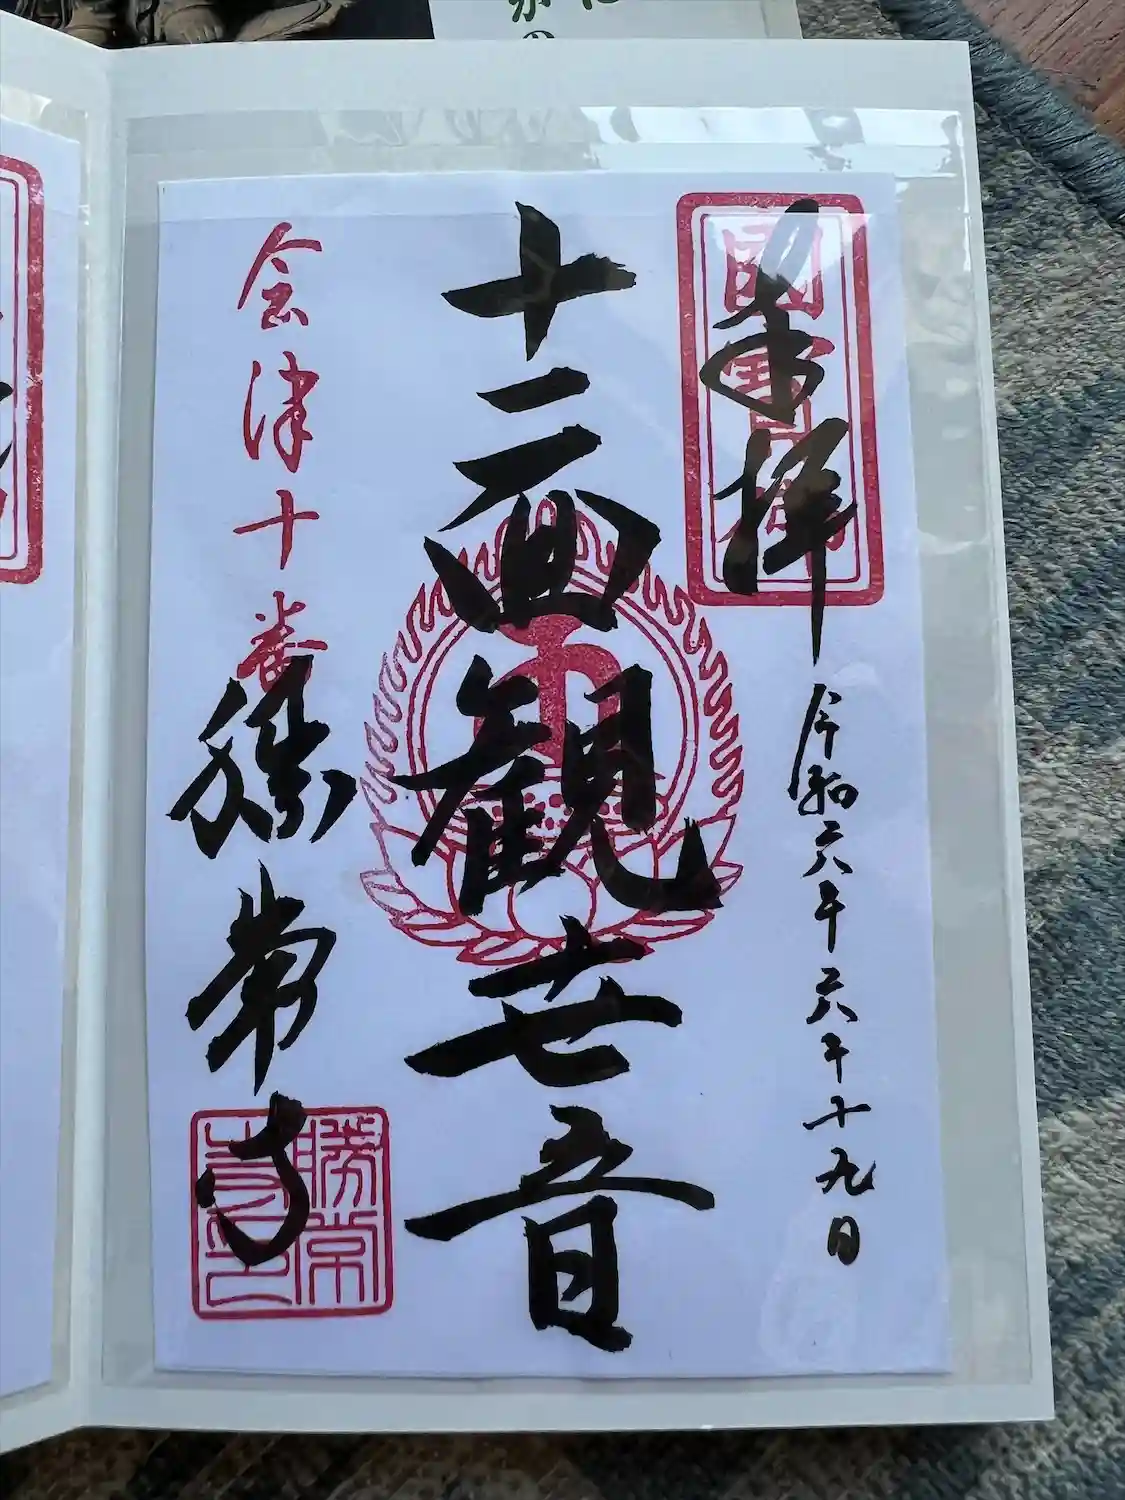 奉拝
國寶
令和六年六月十九日
十一面観世音
会津十番
勝常寺
勝常寺印